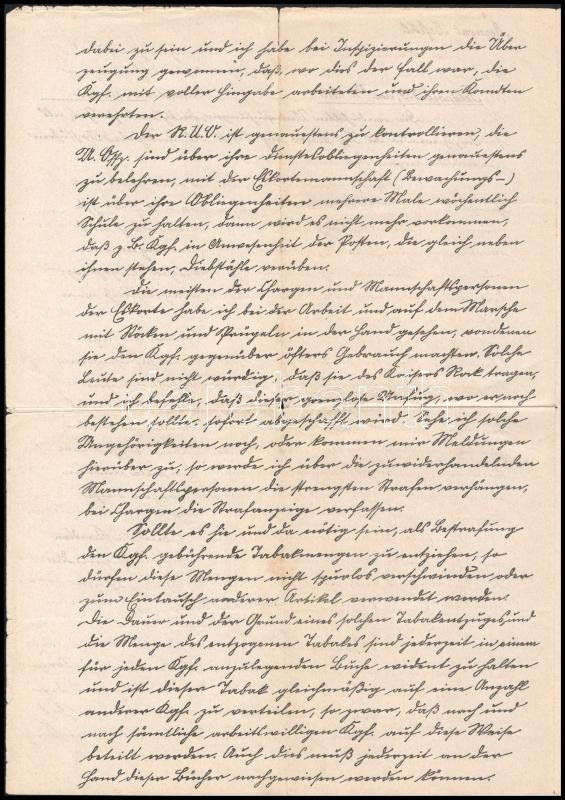 dabei zu sein und ich habe bei Inspizierungen die Über
zeugung gewonnen, daß, wo dies der Fall war, die
Kgf. mit voller Hingabe arbeiteten und ihren Komdten
verehrten.
Der N.U.V. ist genauestens zu kontrollieren, die
U.Offz. sind über ihre Dienstesobliegenheiten genauestens
zu belehren, mit der Eskortemannschaft (Bewachungs-)
ist über ihre Obliegenheiten mehrere Male wöchentlich
Schule zu halten, dann wird es nicht mehr vorkommen,
daß z.B. Kgf. in Anwesenheit der Posten, die gleich neben
ihnen stehen, Diebstähle verüben.
Die meisten der Chargen und Mannschaftspersonen
der Eskorte habe ich bei der Arbeit und auf dem Marsche
mit Stöcken und Prügeln in der Hand gesehen, von denen
sie den Kgf. gegenüber öfters Gebrauch machten. Solche
Leute sind nicht würdig, daß sie des Kaisers Rock tragen,
und ich befehle, daß dieser grenzlose Unfug, wo er noch
bestehen sollte, sofort abgeschafft wird. Sehe ich solche
Ungehörigkeiten noch, oder kommen mir Meldungen
hierüber zu, so werde ich über die zuwiderhandelnden
Mannschaftspersonen die strengsten Strafen verhängen,
bei Chargen die Strafanzeige verfassen.
Sollte es hie und da nötig sein, als Bestrafung
den Kgf. gebührende Tabakmengen zu entziehen, so
dürfen diese Mengen nicht spurlos verschwinden oder
zum Eintausch anderer Artikel verwendet werden.
Die Dauer und der Grund eines solchen Tabakentzuges und
die Menge des entzogenen Tabakes sind jederzeit in einem
für jeden Kgf. anzulegenden Buche evident zu halten
und ist dieser Tabak gleichmäßig auf eine Anzahl
anderer Kgf. zu verteilen, so zwar, daß nach und
nach sämtliche arbeitswilligen Kgf. auf diese Weise
beteilt werden. Auch dies muß jederzeit an der
Hand dieser Bücher nachgewiesen werden können.